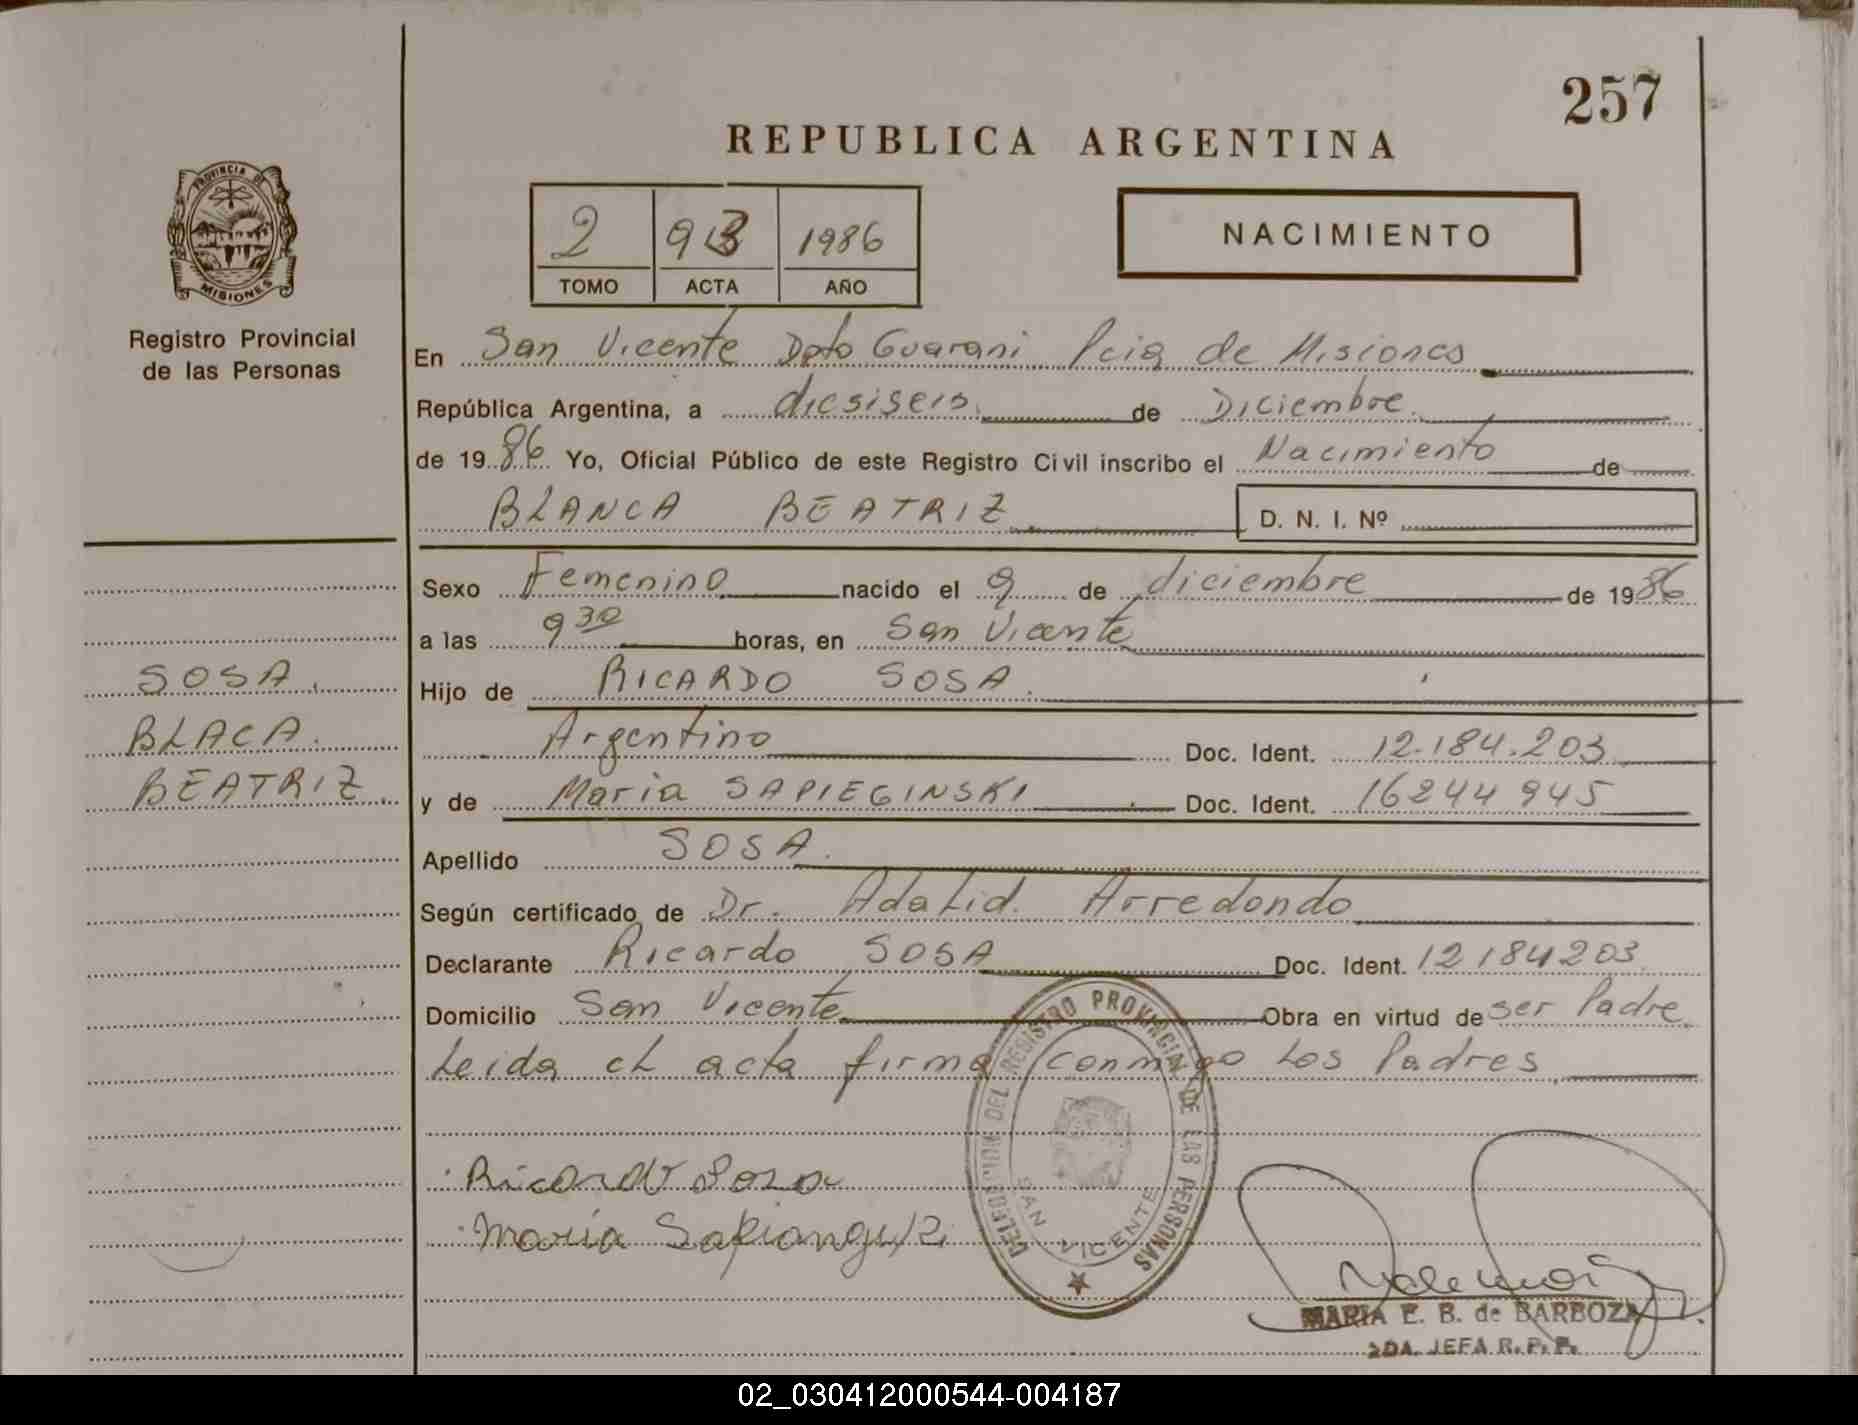 257
REPUBLICA ARGENTINA
PROVINCIA DE
MISIONES
2 913 1986
TOMO ACTA AÑO
NACIMIENTO
Registro Provincial
de las Personas
En San Vicente Dpto Guarani Pcia de Misiones
República Argentina, a diesiseis de Diciembre
de 1986 Yo, Oficial Público de este Registro Civil inscribo el Nacimiento de
BLANCA BEATRIZ D. N. I. Nº
Sexo Femenino nacido el 9 de diciembre de 1986
a las 9 30 horas, en San Vicente
SOSA
Hijo de RICARDO SOSA
BLACA
Argentino Doc. Ident. 12.184.203
BEATRIZ
y de Maria SAPIEGINSKI Doc. Ident. 16244945
Apellido SOSA
Según certificado de Dr. Adalid Arredondo
Declarante Ricardo SOSA Doc. Ident. 12184203
Domicilio San Vicente Obra en virtud de ser Padre
Leida el acta firma conmigo los Padres
DELEGACION DEL REGISTRO PROVINCIAL DE LAS PERSONAS
SAN VICENTE
Ricardo Sosa
María
MARIA E. B. de BARBOZA
2DA. JEFA R. P. P.
02_030412000544-004187